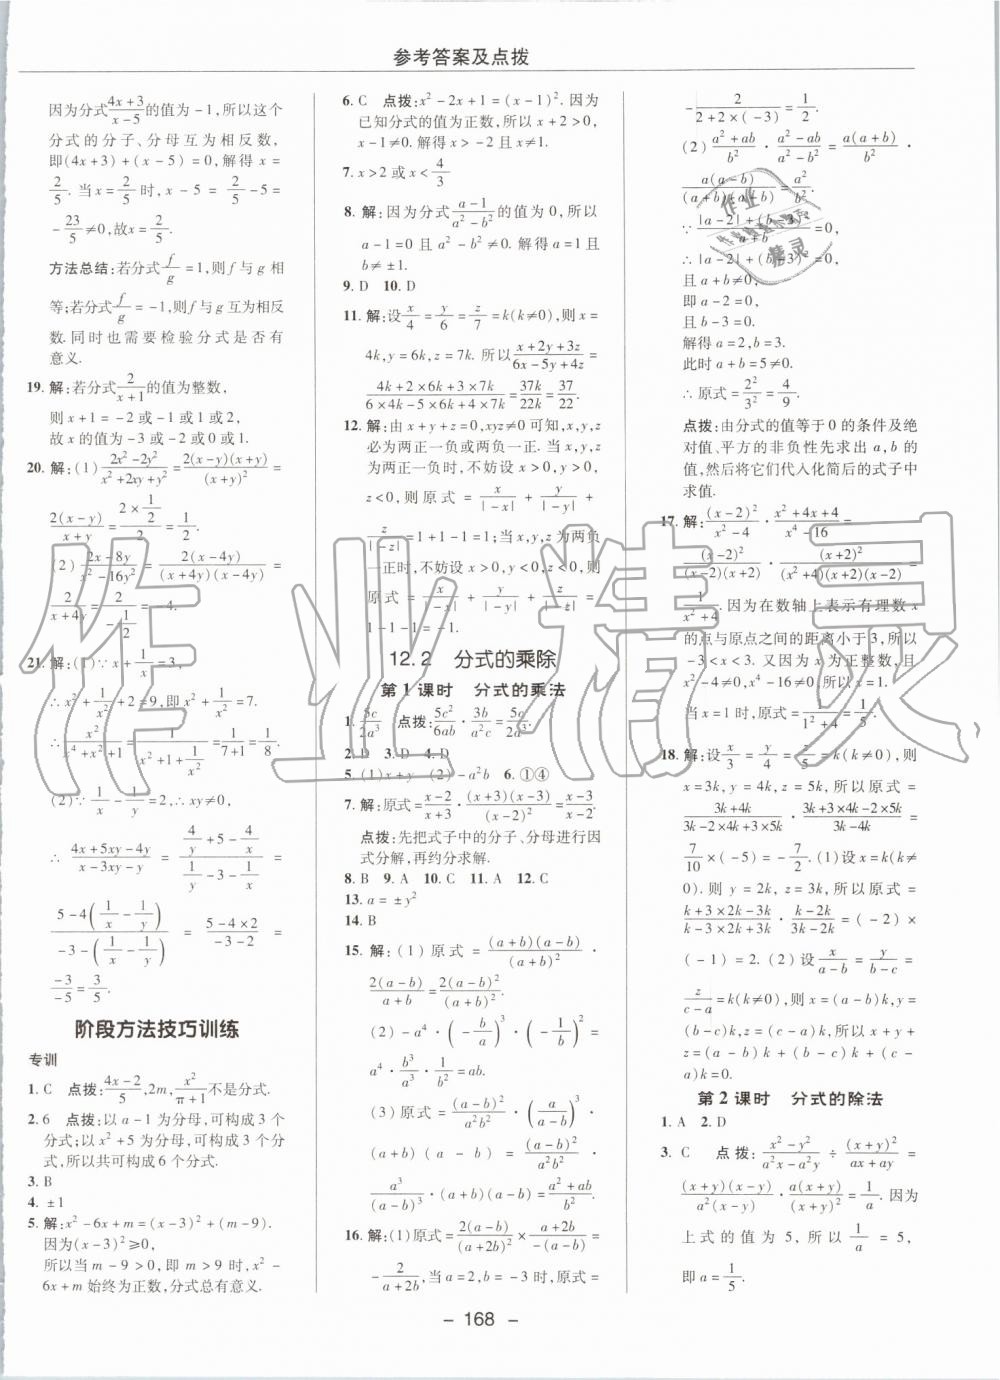 参考答案及点拨
因为分式(4x+3)/(x-5)的值为-1,所以这个
分式的分子、分母互为相反数,
即(4x+3)+(x-5)=0,解得 x=
2/5. 当x=2/5时,x-5=2/5-5=
-23/5≠0,故x=2/5.
方法总结:若分式f/g=1,则f与g相
等;若分式f/g=-1,则f与g互为相反
数.同时也需要检验分式是否有
意义.
19. 解:若分式2/(x+1)的值为整数,
则x+1=-2或-1或1或2,
故x的值为-3或-2或0或1.
20. 解:(1)(2x²-2y²)/(x²+2xy+y²)=2(x-y)(x+y)/(x+y)²=
2(x-y)/(x+y)=(2×1/2)/2=1/2.
(2)(2x-8y)/(x²-16y²)=2(x-4y)/((x+4y)(x-4y))=
2/(x+4y)=2/(-1/2)=-4.
21. 解:(1)∵x+1/x=3,
∴x²+1/x²+2=9,即x²+1/x²=7.
∴x²/(x⁴+x²+1)=1/(x²+1+1/x²)=1/(7+1)=1/8.
(2)∵1/x-1/y=2,∴xy≠0,
∴(4x+5xy-4y)/(x-3xy-y)=(4/y+5-4/x)/(1/y-3-1/x)=
(5-4(1/x-1/y))/(-3-(1/x-1/y))=(5-4×2)/(-3-2)=
-3/-5=3/5.
阶段方法技巧训练
专训
1. C 点拨:(4x-2)/5,2m,x²/(π+1)不是分式.
2. 6 点拨:以a-1为分母,可构成3个
分式;以x²+5为分母,可构成3个分
式,所以共可构成6个分式.
3. B
4. ±1
5. 解:x²-6x+m=(x-3)²+(m-9).
因为(x-3)²≥0,
所以当m-9>0,即m>9时,x²-
6x+m始终为正数,分式总有意义.
6. C 点拨:x²-2x+1=(x-1)².因为
已知分式的值为正数,所以x+2>0,
x-1≠0.解得x>-2且x≠1.
7. x>2或x<4/3
8. 解:因为分式(a-1)/(a²-b²)的值为0,所以
a-1=0且a²-b²≠0.解得a=1且
b≠±1.
9. D 10. D
11. 解:设x/4=y/6=z/7=k(k≠0),则x=
4k,y=6k,z=7k.所以(x+2y+3z)/(6x-5y+4z)=
(4k+2×6k+3×7k)/(6×4k-5×6k+4×7k)=37k/22k=37/22.
12. 解:由x+y+z=0,xyz≠0可知,x,y,z
必为两正一负或两负一正.当x,y,z
为两正一负时,不妨设x>0,y>0,
z<0,则原式=x/|-x|+y/|-y|+
z/|-z|=1+1-1=1;当x,y,z为两负
一正时,不妨设x>0,y<0,z<0,则
原式=x/|-x|+y/|-y|+z/|-z|=
1-1-1=-1.
12.2 分式的乘除
第1课时 分式的乘法
1. 5c/2a³ 点拨:5c²/6ab·3b/a²c=5c/2a³.
2. D 3. D 4. D
5. (1)x+y (2)-a²b 6. ①④
7. 解:原式=(x-2)/(x+3)·(x+3)(x-3)/(x-2)²=(x-3)/(x-2).
点拨:先把式子中的分子、分母进行因
式分解,再约分求解.
8. B 9. A 10. C 11. A 12. C
13. a=±y²
14. B
15. 解:(1)原式=(a+b)(a-b)/(a+b)²·
2(a-b)/(a+b)=2(a-b)²/(a+b)².
(2)-a⁴·(-b/a)³·(-1/b²)²=
a⁴·b³/a³·1/b⁴=a/b.
(3)原式=(a-b)²/b²·(a/(a-b))³·
(a+b)(a-b)=(a-b)²/b²·
a³/(a-b)³·(a+b)(a-b)=(a²+ab)/b².
16. 解:(1)原式=2(a-b)/(a+2b)²×(a+2b)/-(a-b)=
-2/(a+2b),当a=2,b=-3时,原式=
-2/(2+2×(-3))=1/2.
(2)(a²+ab)/b²·(a²-ab)/(a²-b²)=a(a+b)/b²·
a(a-b)/((a+b)(a-b))=a²/b².
∵(|a-2|+(b-3)²)/(a+b)=0,
∴|a-2|+(b-3)²=0,
且a+b≠0,
即a-2=0,
且b-3=0.
解得a=2,b=3.
此时a+b=5≠0.
∴原式=2²/3²=4/9.
点拨:由分式的值等于0的条件及绝
对值、平方的非负性先求出a,b的
值,然后将它们代入化简后的式子中
求值.
17. 解:(x-2)²/(x²-4)·(x²+4x+4)/(x⁴-16)=
(x-2)²/((x-2)(x+2))·(x+2)²/((x²+4)(x+2)(x-2))=
1/(x²+4).因为在数轴上表示有理数x
的点与原点之间的距离小于3,所以
-3<x<3.又因为分式有意义,所以
x²-4≠0,x⁴-16≠0.所以x≠±2.
当x=1时,原式=1/(1²+4)=1/5.
18. 解:设x/3=y/4=z/5=k(k≠0),则
x=3k,y=4k,z=5k,所以原式=
(3k+4k)/(3k-2×4k+3×5k)·(3k+3×4k-2×5k)/(3k-4k)=
7/10×(-5)=-7/2.(1)设x=k(k≠
0).则y=2k,z=3k,所以原式=
(k+3×2k-3k)/(k-3×2k+3k)·(k-2k)/(k+2k-3k)=(-2)×
(-1)=2.(2)设x/(a-b)=y/(b-c)=
z/(c-a)=k(k≠0),则x=(a-b)k,y=
(b-c)k,z=(c-a)k,所以x+y+
z=(a-b)k+(b-c)k+(c-
a)k=0.
第2课时 分式的除法
1. A 2. D
3. C 点拨:(x²-y²)/(a²x-a²y)÷(x+y)²/(ax+ay)
=(x+y)(x-y)/a²(x-y)·a(x+y)/(x+y)²=1/a.因为
上式的值为5,所以1/a=5,
即a=1/5.
- 168 -
作业精灵
作业
精灵